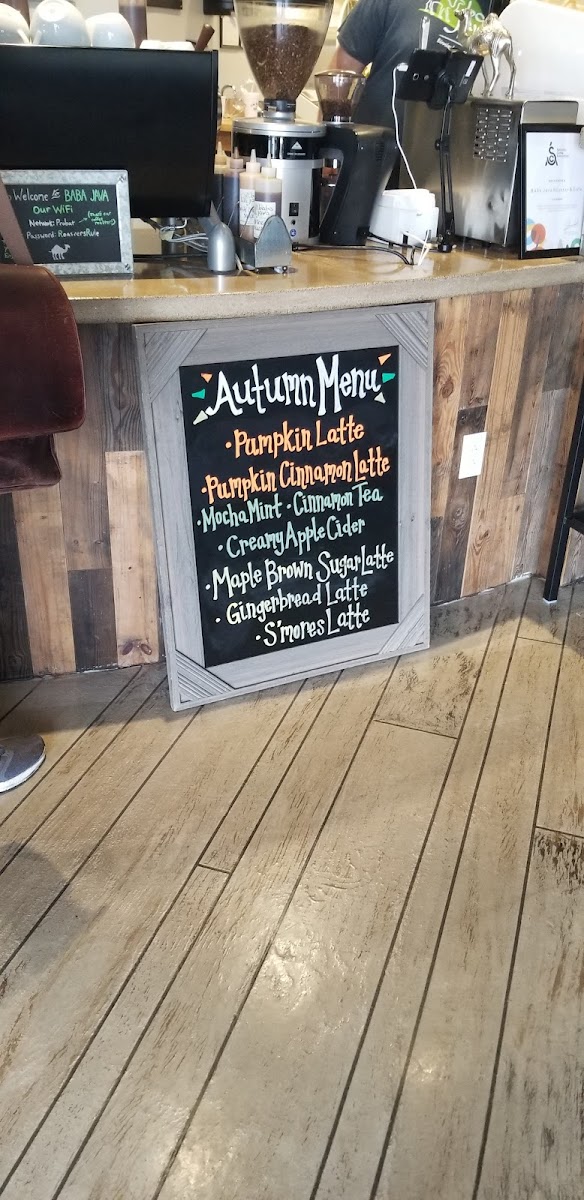 Welcome to BABA JAVA
Our WiFi
Password: RoastersRule
Autumn Menu
• Pumpkin Latte
• Pumpkin Cinnamon Latte
• Mocha Mint • Cinnamon Tea
• Creamy Apple Cider
• Maple Brown Sugar Latte
• Gingerbread Latte
• S'mores Latte